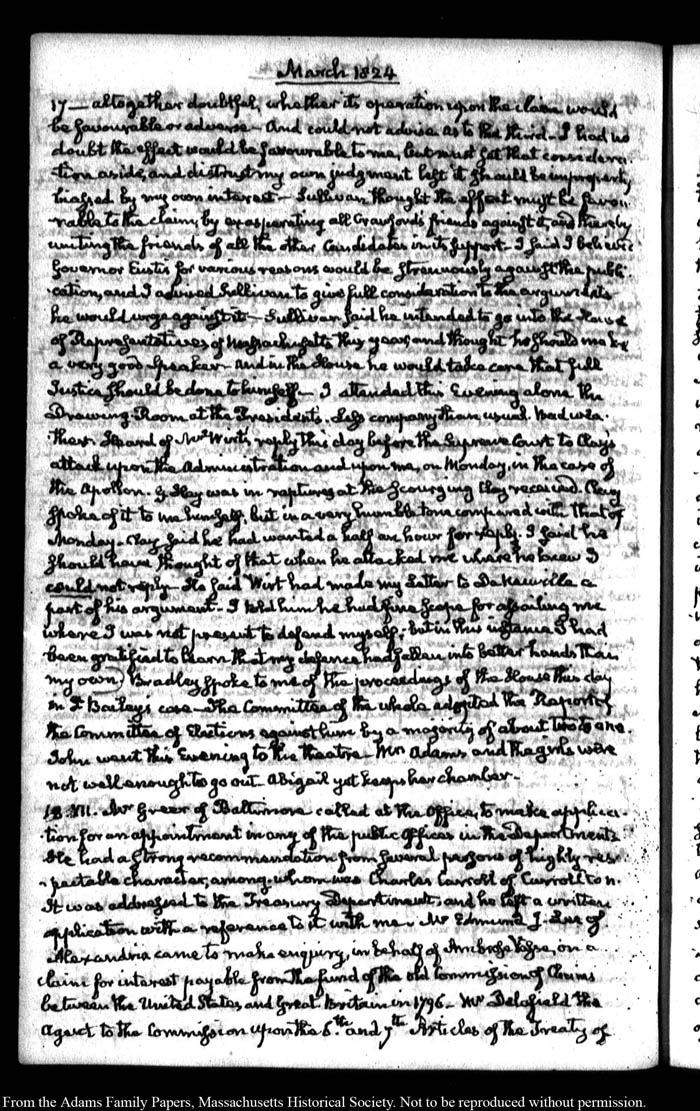 March 1824
17— altogether doubtful, whether its operation upon the claim would
be favourable or adverse— And could not advise as to the third— I had no
doubt the effect would be favourable to me, but must set that considera-
tion aside, and distrust my own judgment lest it should be improperly
biassed by my own interest— Sullivan thought the effect must be favou-
rable to the claim, by exasperating all Crawford's friends against it, and thereby
uniting the friends of all the other Candidates in its support— I said I believed
Governor Eustis for various reasons would be strenuously against the publi-
cation, and I advised Sullivan to give full consideration to the arguments
he would urge against it— Sullivan said he intended to go into the House
of Representatives of Massachusetts this year, and thought he should make
a very good Speaker— and in the House he would take care that full
Justice should be done to himself— I attended this Evening alone the
Drawing-Room at the Presidents. Less company than usual. Bad wea-
ther. Heard of Mr Wirt's reply this day before the Supreme Court to Clay's
attack upon the Administration and upon me, on Monday, in the case of
the Apollon. G. Hay was in raptures at the scourging Clay received. Clay
spoke of it to me himself, but in a very humble tone compared with that of
Monday— Clay said he had wanted a half an hour for reply. I said he
should have thought of that when he attacked me where he knew I
could not reply— He said Wirt had made my Letter to De Neuville a
part of his argument— I told him he had fine scope for assailing me
where I was not present to defend myself; but in this instance I had
been gratified to learn that my defence had fallen into better hands than
my own) Bradley spoke to me of the proceedings of the House this day
in J. Bailey's case— The Committee of the whole adopted the Report of
the Committee of Elections against him by a majority of about two to one.
John went this Evening to the theatre— Mrs Adams and the girls were
not well enough to go out— Abigail yet keeps her chamber—
18. VII. Mr Greer of Baltimore called at the Office, to make applica-
tion for an appointment in any of the public Offices in the Departments
He had a strong recommendation from several persons of highly res-
pectable character, among whom was Charles Carroll of Carrollton.
It was addressed to the Treasury Department; and he left a written
application with a reference to it with me— Mr Edmund J. Lee of
Alexandria came to make enquiry, in behalf of Ambrose Vasse, on a
claim for interest payable from the fund of the old Commission of Claims
between the United States and Great Britain in 1796— Mr Delafield the
Agent to the Commission upon the 6th and 7th Articles of the Treaty of
From the Adams Family Papers, Massachusetts Historical Society. Not to be reproduced without permission.